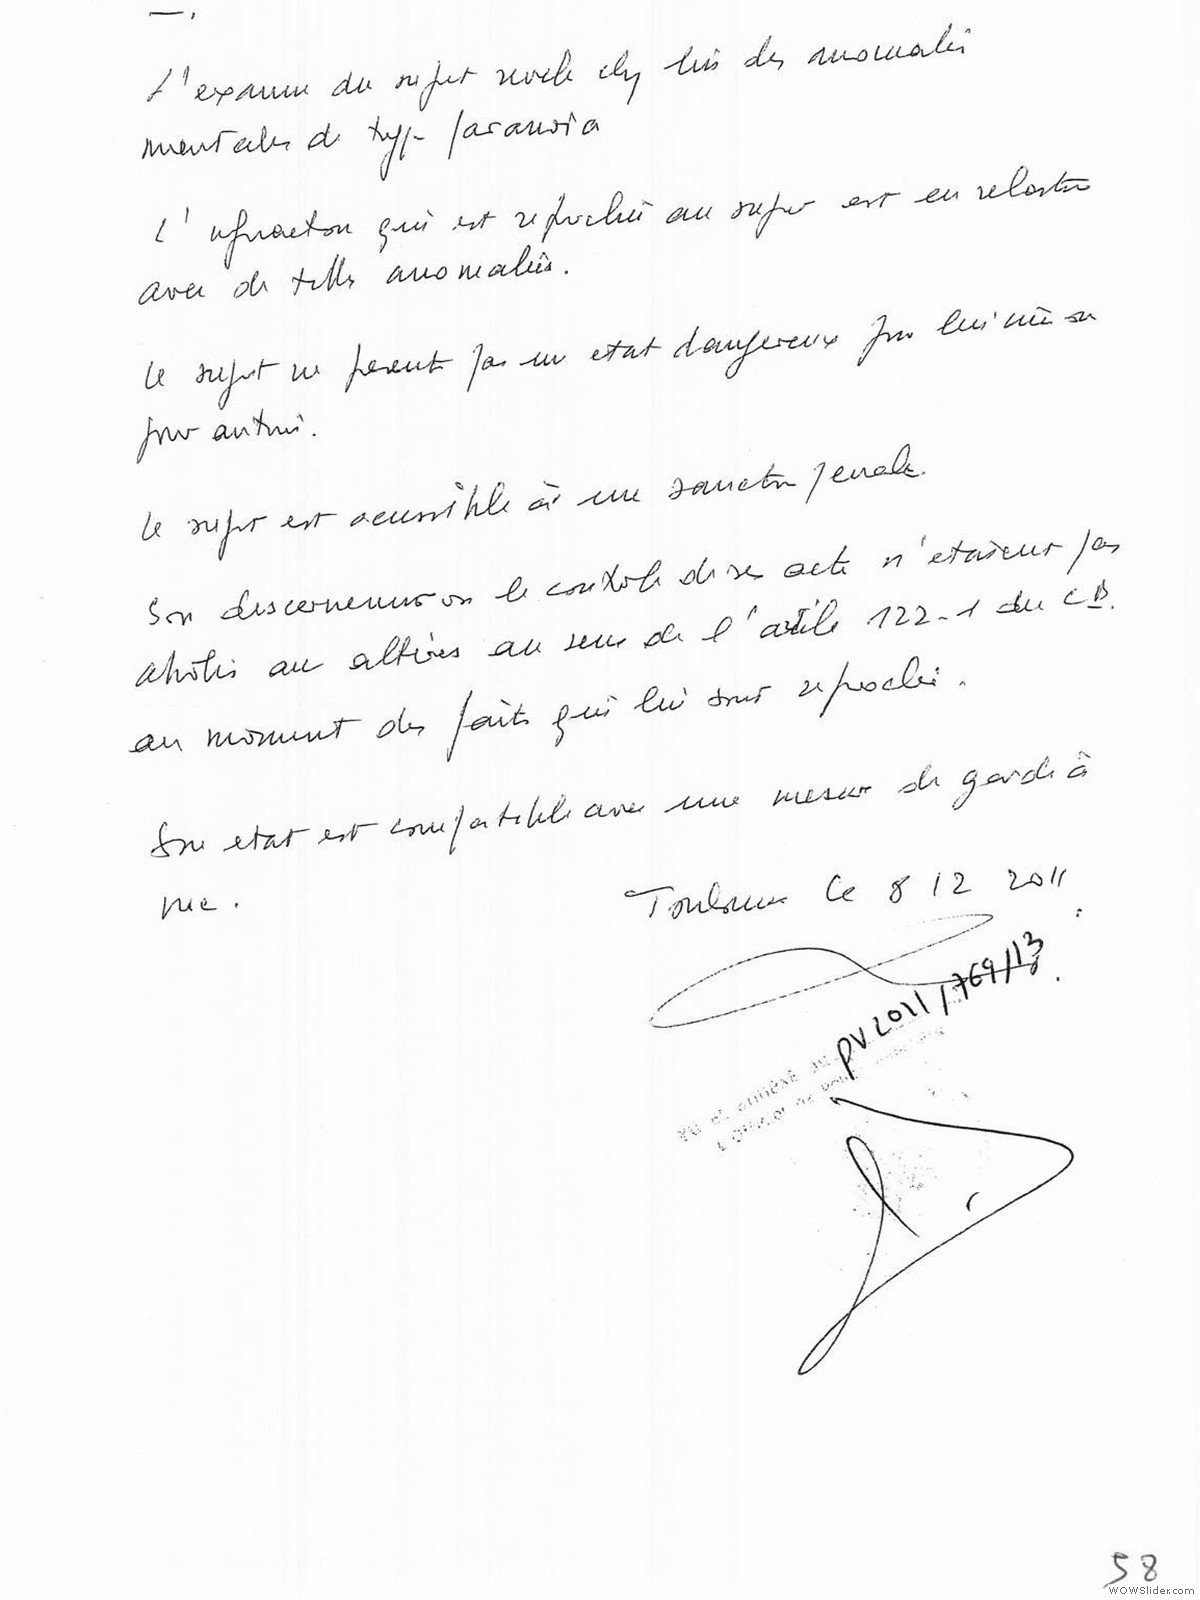 L'examen du sujet revele chez lui des anomalies
mentales de type paranoia
L'infraction qui est reprochée au sujet est en relation
avec de telles anomalies.
Le sujet ne presente pas un etat dangereux pour lui même ou
pour autrui.
Le sujet est accessible à une sanction penale.
Son discernement ou le controle de ses acte n'etaient pas
abolis ou altérés au sens de l'article 122-1 du CP.
au moment des faits qui lui sont reprochés.
Son etat est compatible avec une mesure de garde à
vue.
Toulouse le 8 12 2011
PV 2011/769/13
58
WOWSlider.com